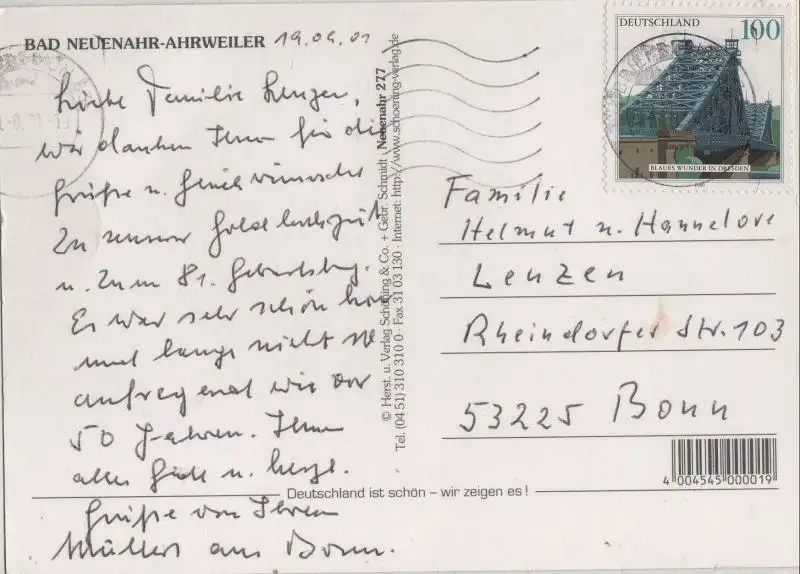 BAD NEUENAHR-AHRWEILER 19.09.01
Liebe Familie Lenzen,
wir danken Ihnen für die
Grüße u. Glückwünsche
zu unserer Goldhochzeit
u. zum 81. Geburtstag.
Es war sehr schön
und lange nicht so
aufregend wie vor
50 Jahren. Ihnen
alles Gute u. herzl.
Grüße von Ihren
Müllers aus Bonn.
© Herst. u. Verlag Schöning & Co. + Gebr. Schmidt · Neuenahr 277
Tel. (04 51) 310 310 0 · Fax 31 03 130 · Internet: http://www.schoening-verlag.de
DEUTSCHLAND 100
BLAUES WUNDER IN DRESDEN
2000
Familie
Helmut u. Hannelore
Lenzen
Rheindorfer Str. 103
53225 Bonn
4 004545 000019
Deutschland ist schön – wir zeigen es!